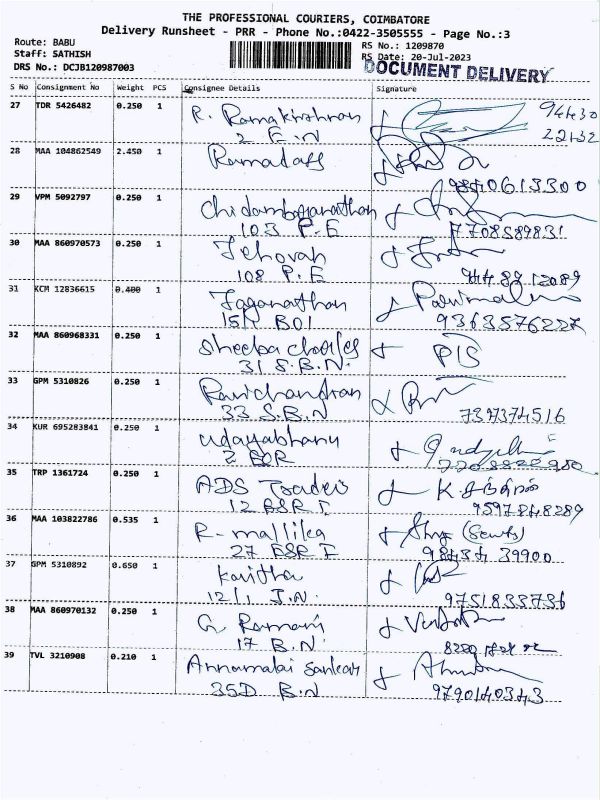 THE PROFESSIONAL COURIERS, COIMBATORE
Delivery Runsheet - PRR - Phone No.:0422-3505555 - Page No.:3
Route: BABU
Staff: SATHISH
DRS No.: DCJB120987003
RS No.: 1209870
RS Date: 20-Jul-2023
DOCUMENT DELIVERY
S No Consignment No Weight PCS Consignee Details Signature
27 TDR 5426482 0.250 1 R. Ramakrishnan
2 E.N
94430
22132
28 MAA 104862549 2.450 1 Ramadass
9840613300
29 VPM 5092797 0.250 1 Chidambaranathan
103 P.E 7708589831
30 MAA 860970573 0.250 1 Jehovah
108 P.E
31 KCM 12836615 0.400 1 Jaganathan
9363576227
32 MAA 860968331 0.250 1 Sheeba charles
31 S.B.N.
33 GPM 5310826 0.250 1 Ravichandran
33 S.B.N 737374516
34 KUR 695283841 0.250 1 udayabhanu
35 TRP 1361724 0.250 1 ADS Traders
12 BSR I 9597848289
36 MAA 103822786 0.535 1 R-mallika
27 BSR I 98434 39900
37 GPM 5310892 0.650 1 Kavitha
12/1 J.N. 9751833736
38 MAA 860970132 0.250 1 G Ramani
17 B.N.
39 TVL 3210908 0.210 1 Annamalai Sankar
35D B.N 9790140343